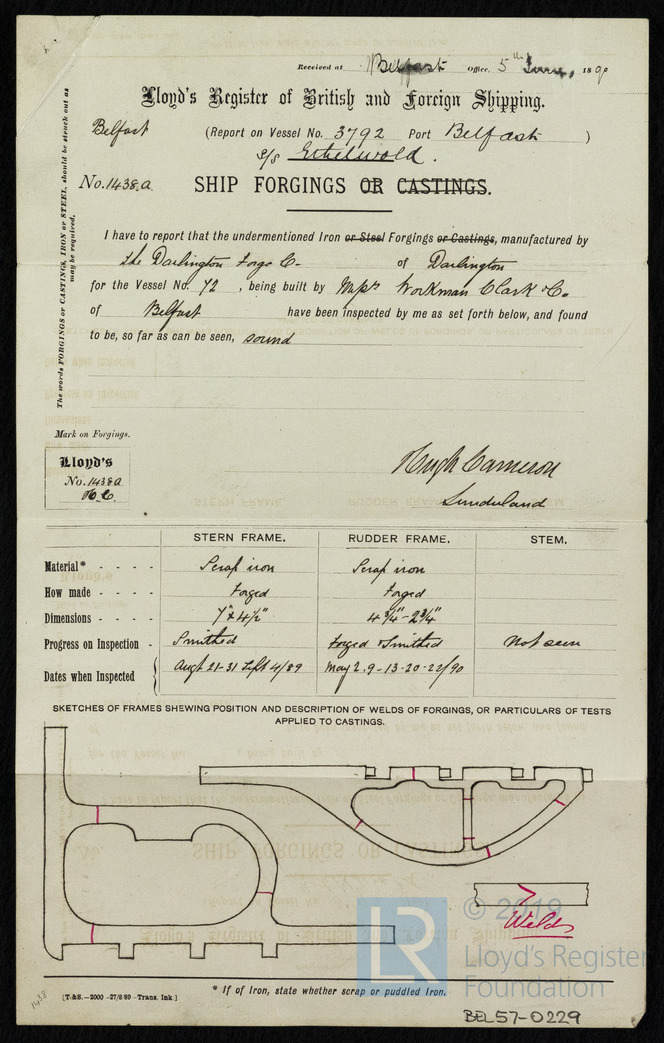 Received at Belfast Office, 5th June, 1890
Lloyd's Register of British and Foreign Shipping.
Belfast (Report on Vessel No. 3792 Port Belfast )
s/s Ethelwold.
No. 1438.a. SHIP FORGINGS OR CASTINGS.
The words FORGINGS or CASTINGS, IRON or STEEL, should be struck out as
may be required.
I have to report that the undermentioned Iron or Steel Forgings or Castings, manufactured by
the Darlington Forge Co. of Darlington
for the Vessel No. 72 , being built by Mess Workman Clark & Co.
of Belfast have been inspected by me as set forth below, and found
to be, so far as can be seen, sound
Mark on Forgings.
Lloyd's
No. 1438a
H.C.
Hugh Cameron
Sunderland
STERN FRAME. RUDDER FRAME. STEM.
Material* - - - - Scrap iron Scrap iron
How made - - - - Forged Forged
Dimensions - - - - 7"x4½" 4¾"-2¾"
Progress on Inspection - Smithed Forged & Smithed Not seen
Dates when Inspected Augt 21-31 Sept 4/89 May 2.9-13-20-22/90
SKETCHES OF FRAMES SHEWING POSITION AND DESCRIPTION OF WELDS OF FORGINGS, OR PARTICULARS OF TESTS
APPLIED TO CASTINGS.
Welds
LR © 2019
Lloyd's Register
Foundation
* If of Iron, state whether scrap or puddled Iron.
[T.&S.—2000—27/8 89—Trans. Ink.]
1438
BEL57-0229